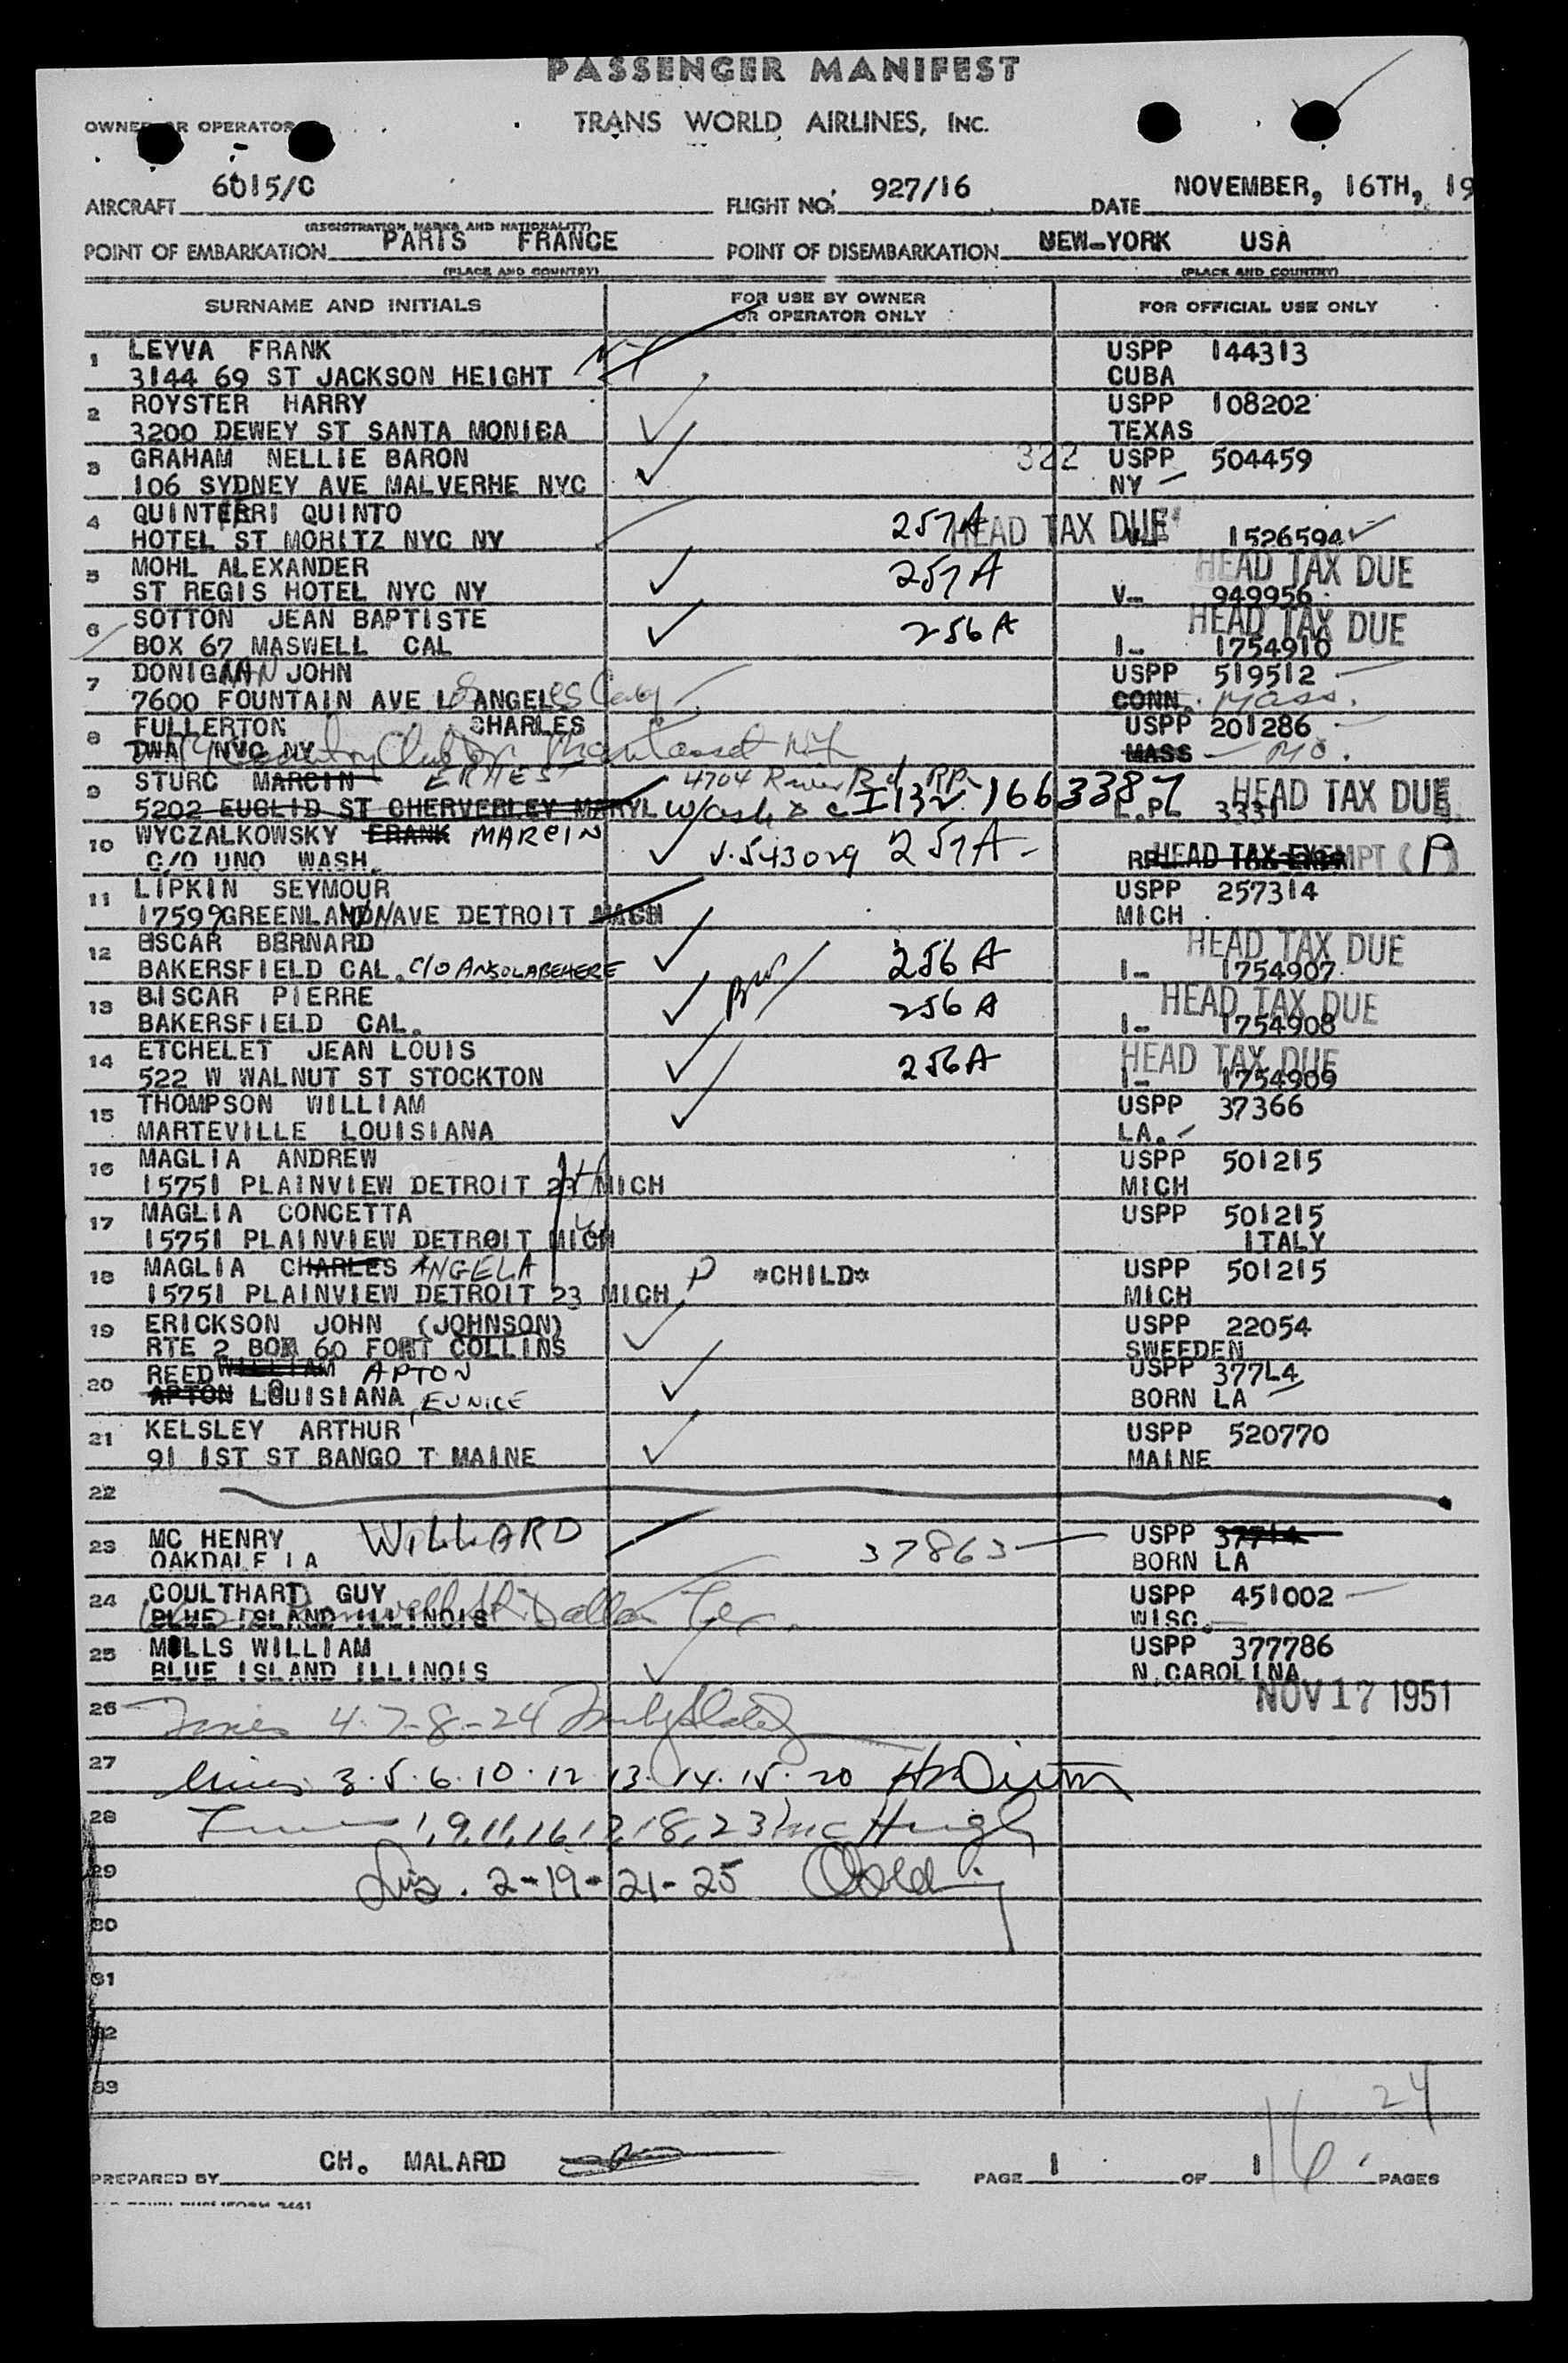 PASSENGER MANIFEST
OWNER OR OPERATOR
TRANS WORLD AIRLINES, INC.
AIRCRAFT 6015/C FLIGHT NO. 927/16 DATE NOVEMBER, 16TH, 19
(REGISTRATION MARKS AND NATIONALITY)
POINT OF EMBARKATION PARIS FRANCE POINT OF DISEMBARKATION NEW-YORK USA
(PLACE AND COUNTRY) (PLACE AND COUNTRY)
SURNAME AND INITIALS FOR USE BY OWNER OR OPERATOR ONLY FOR OFFICIAL USE ONLY
1 LEYVA FRANK USPP 144313
3144 69 ST JACKSON HEIGHT CUBA
2 ROYSTER HARRY USPP 108202
3200 DEWEY ST SANTA MONICA TEXAS
3 GRAHAM NELLIE BARON 322 USPP 504459
106 SYDNEY AVE MALVERHE NYC NY
4 QUINTERRI QUINTO 257A HEAD TAX DUE
HOTEL ST MORITZ NYC NY 1526594
5 MOHL ALEXANDER 257A HEAD TAX DUE
ST REGIS HOTEL NYC NY V- 949956
6 SOTTON JEAN BAPTISTE 256A HEAD TAX DUE
BOX 67 MASWELL CAL I- 1754910
7 DONIGAN JOHN USPP 519512
7600 FOUNTAIN AVE LOS ANGELES CONN. Mass.
8 FULLERTON CHARLES USPP 201286
TWA NYC NY Country Club Dr Manhasset NY MASS MO.
9 STURC MARCIN ERNEST 4704 River Rd RP HEAD TAX DUE
5202 EUCLID ST CHERVERLEY MARYL Wash D C I132 1663387 L.PL 3331
10 WYCZALKOWSKY FRANK MARCIN
C/O UNO WASH. V.543029 257A- HEAD TAX EXEMPT (P)
11 LIPKIN SEYMOUR USPP 257314
17599 GREENLAWN AVE DETROIT MICH
12 BSCAR BERNARD 256A HEAD TAX DUE
BAKERSFIELD CAL. C/O ANSOLABEHERE I- 1754907
13 BISCAR PIERRE 256A HEAD TAX DUE
BAKERSFIELD CAL. I- 1754908
14 ETCHELET JEAN LOUIS 256A HEAD TAX DUE
522 W WALNUT ST STOCKTON I- 1754909
15 THOMPSON WILLIAM USPP 37366
MARTEVILLE LOUISIANA LA.
16 MAGLIA ANDREW USPP 501215
15751 PLAINVIEW DETROIT 23 MICH MICH
17 MAGLIA CONCETTA USPP 501215
15751 PLAINVIEW DETROIT MICH ITALY
18 MAGLIA CHARLES ANGELA P *CHILD* USPP 501215
15751 PLAINVIEW DETROIT 23 MICH MICH
19 ERICKSON JOHN (JOHNSON) USPP 22054
RTE 2 BOX 60 FORT COLLINS SWEEDEN
20 REED WILLIAM APTON USPP 377L4
APTON LOUISIANA, EUNICE BORN LA
21 KELSLEY ARTHUR USPP 520770
91 1ST ST BANGO T MAINE MAINE
22
23 MC HENRY WILLARD 37863 USPP 37714
OAKDALE LA BORN LA
24 COULTHARD GUY USPP 451002
BLUE ISLAND ILLINOIS Dallas Tex. WISC.
25 MILLS WILLIAM USPP 377786
BLUE ISLAND ILLINOIS N.CAROLINA
NOV 17 1951
26 Lines 4-7-8-24
27 Lines 3.5.6.10.12.13.14.15.20
28 Lines 1,9,11,16,17,18,23 McHugh
29 Lis. 2-19-21-25
30
31
32
33
24
PREPARED BY CH. MALARD PAGE 1 OF 1 PAGES
16